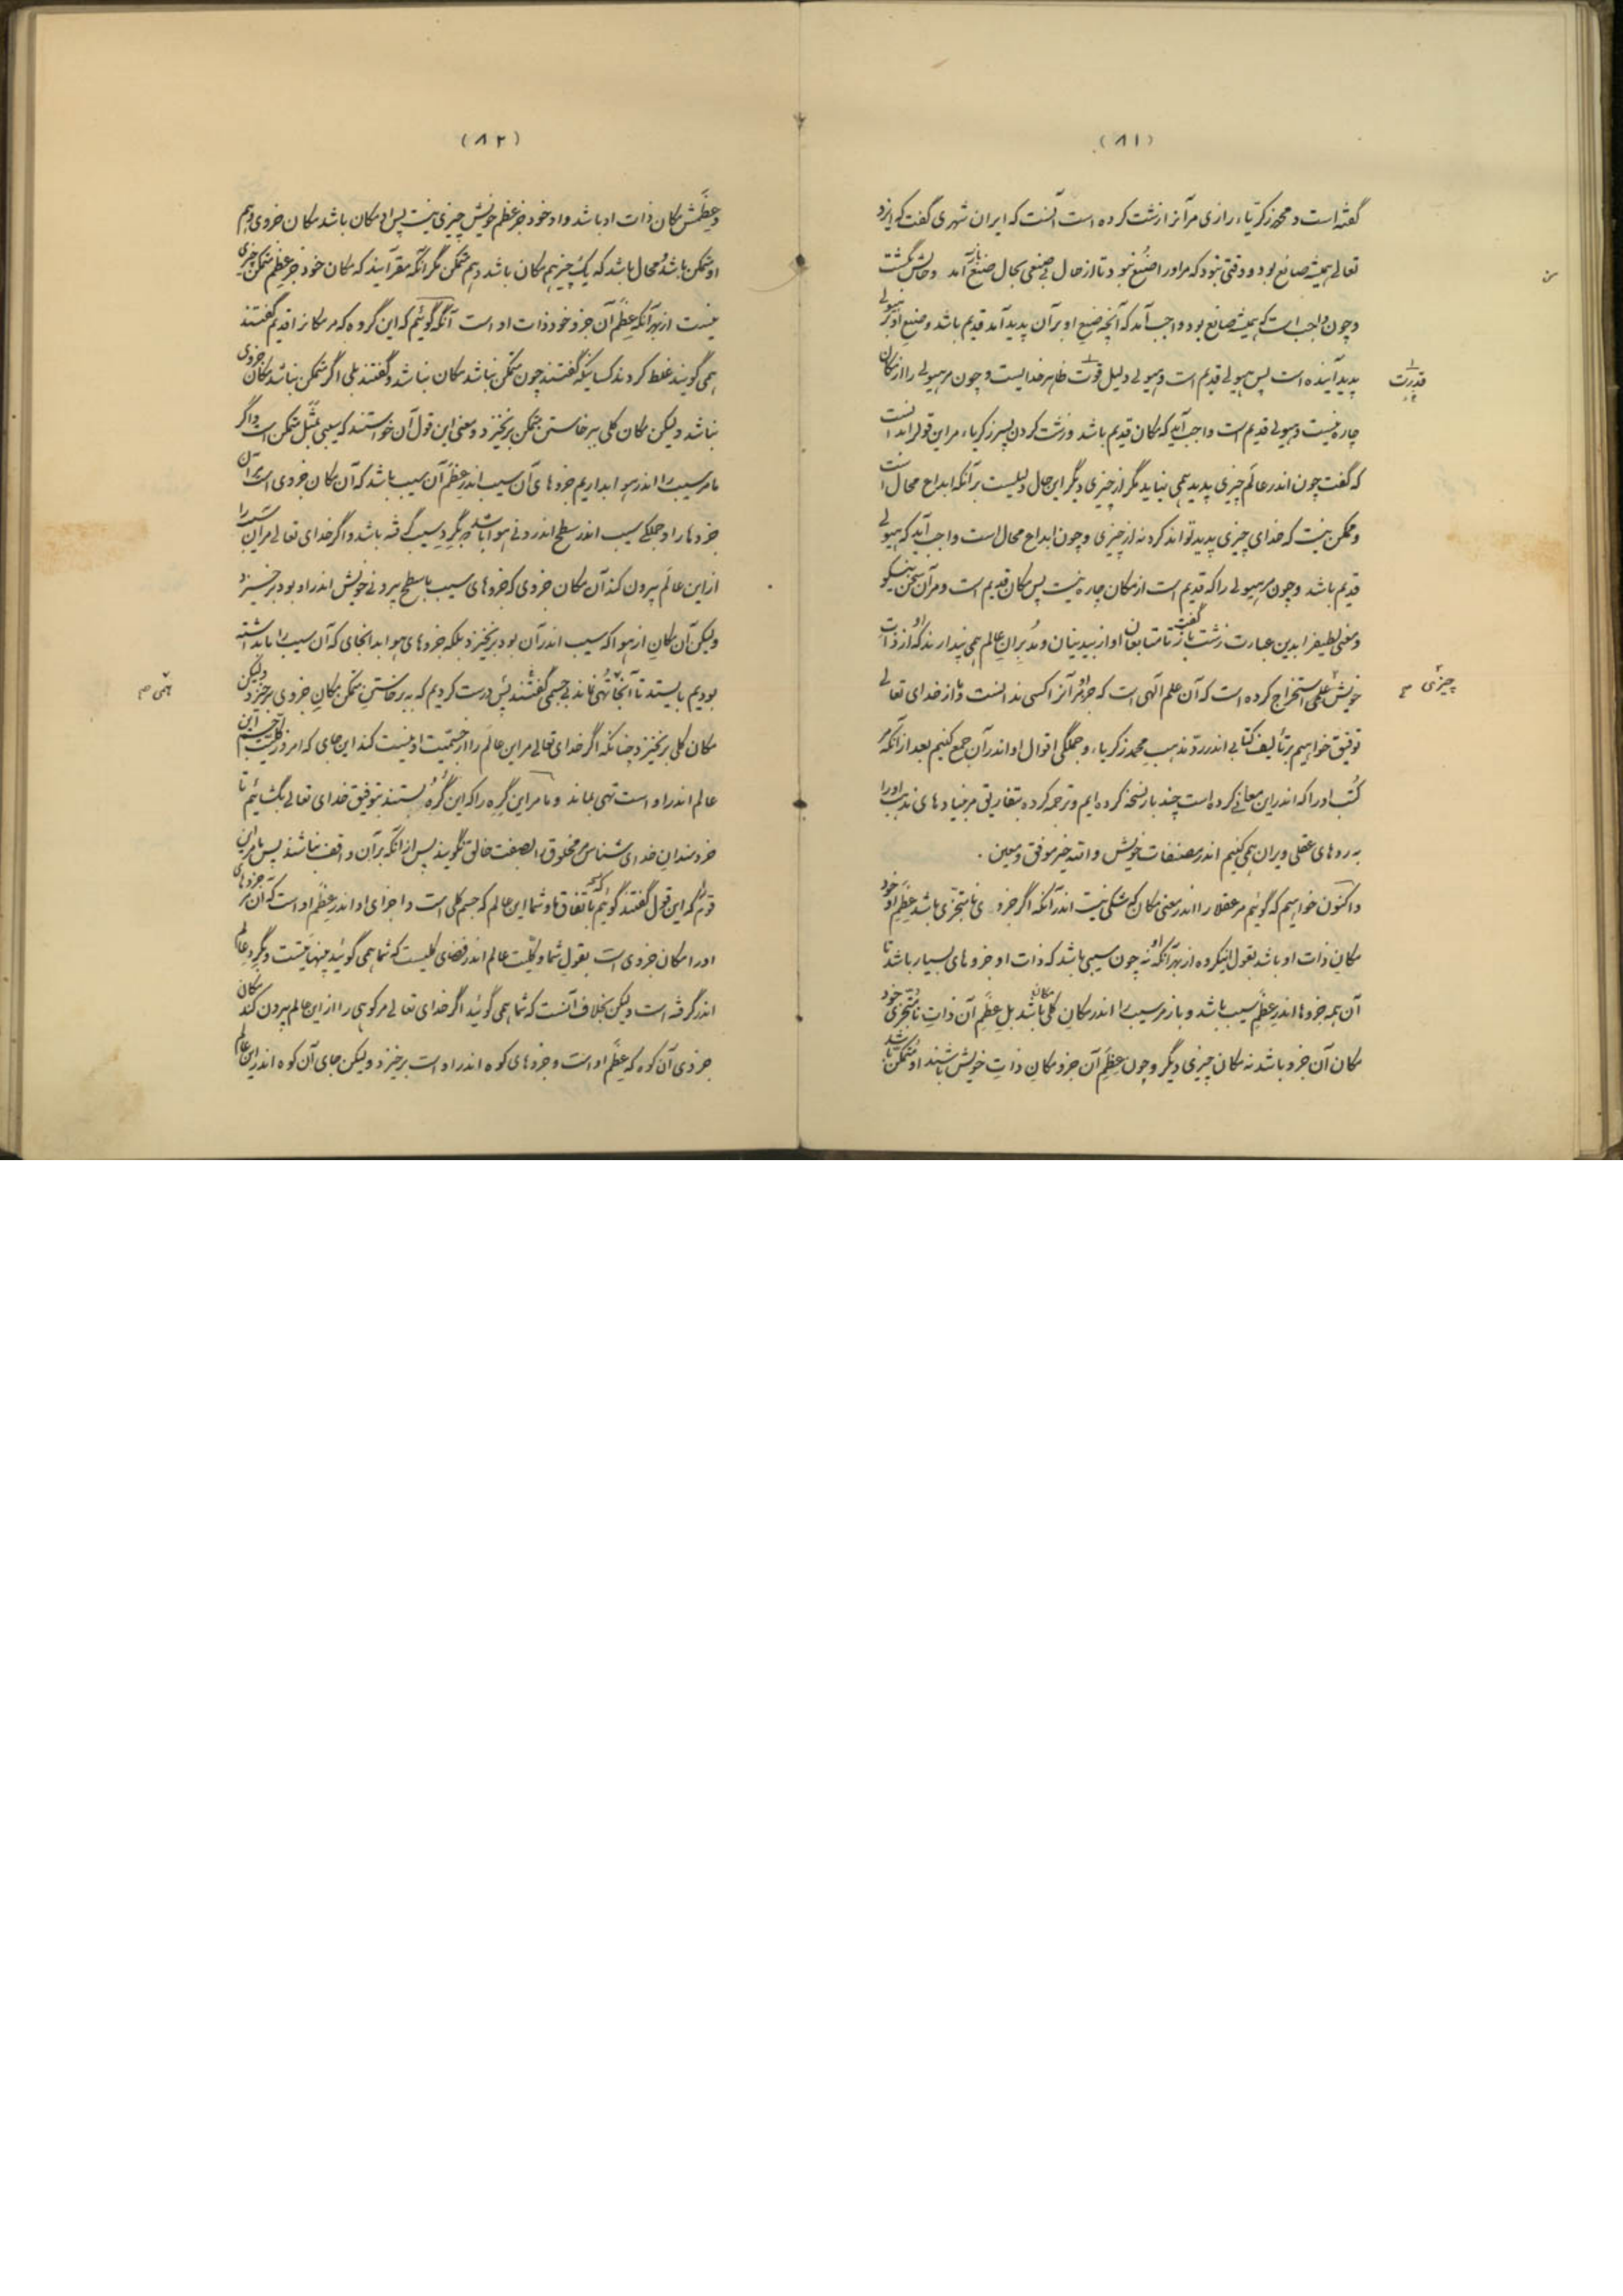 (۸۱)
گفته است و محمد زکریاء رازی مر آنرا زشت کرده است آنست که ایران شهری گفت که ایزد
تعالی همیشه صانع بود و وقتی نبود که مر او را صنع نبود تا از حال بی صنعی بحال صنع آمد و حالش بگشت
و چون واجب است که همیشه صانع بود واجب آمد که آنچه صنع او بر آن پدید آمد قدیم باشد و صنع او بر هیولی
پدید آینده است پس هیولی قدیم است و هیولی دلیل قوت ظاهر خدایست و چون مر هیولی را از مکان
قدرت
چاره نیست و هیولی قدیم است واجب آید که مکان قدیم باشد و زشت کردن پسر زکریاء مر این قول را بد آنست
که گفت چون اندر عالم چیزی پدید همی نیاید مگر از چیزی دیگر این حال دلیلست بر آنکه ابداع محال است
و ممکن نیست که خدای چیزی پدید تواند کرد نه از چیزی و چون ابداع محال است واجب آید که هیولی
قدیم باشد و چون مر هیولی را که قدیم است از مکان چاره نیست پس مکان قدیم است و مر آن سخن نیکو
و معنی لطیف را بدین عبارت زشت باز گفت تا متابعان او از بیدینان و مدبران عالم همی پندارند که از ذات
خویش علمی استخراج کرده است که آن علم الهی است که جز او مر آنرا کسی ندانست و ما از خدای تعالی
چیزی
توفیق خواهیم بر تألیف کتابی اندر ردّ مذهب محمد زکریاء و جملگی اقوال او اندر آن جمع کنیم بعد از آنکه مر
کتب او را که اندر این معانی کرده است چند باره نسخه کرده ایم و ترجمه کرده بتفاریق مر بنیادهای مذهب او را
به ردهای عقلی ویران همی کنیم اندر مصنفات خویش و الله خیر موفق و معین .
و اکنون خواهیم که گوئیم مر عقلا را اندر معنی مکان که شکی نیست اندر آنکه اگر جزوی نا متجزی باشد عظم او خود
مکان ذات او باشد بقول اینگروه از بهر آنکه او نه چون سیبی باشد که ذات او جزوهای بسیار باشد تا
آن همه جزوها اندر عظم سیب باشد و باز مر سیب را اندر مکان کلی مکان باشد بل عظم آن ذات نا متجزی خود
مکان آن جزو باشد نه مکان چیزی دیگر و چون عظم آن جزو مکان ذات خویش باشد او متمکن باشد
(۸۲)
و عظمش مکان ذات او باشد و او خود جز عظم خویش چیزی نیست پس او مکان باشد مکان جزوی و هم
او متمکن باشد و محال باشد که یک چیز هم مکان باشد و هم متمکن مگر آنکه مقر آیند که مکان خود جز عظم متمکن چیزی
نیست از بهر آنکه عظم آن جزو خود ذات او است آنگه گوئیم که این گروه که مر مکان را قدیم گفتند
همی گویند غلط کردند کسانیکه گفتند چون متمکن نباشد مکان نباشد و گفتند بلی اگر متمکن نباشد مکان جزوی
نباشد و لیکن مکان کلی ببر خاستن متمکن بر نخیزد و معنی این قول آن خواستند که یعنی بمثل متمکن است و اگر
ما مر سیب را اندر هوا بداریم جزوهای آن سیب اندر عظم آن سیب باشد که آن مکان جزوی است مر آن
جزوها را و جملگی سیب اندر سطح اندرونی هوا باشد که بگرد سیب گرفته باشد و اگر خدای تعالی مر این سیب را
از این عالم بیرون کند آن مکان جزوی که جزوهای سیب با سطح بیرونی خویش اندر او بود بر خیزد
ولیکن آن مکان از هوا که سیب اندر آن بود بر نخیزد بلکه جزوهای هوا بدانجای که آن سیب را بداشته
بودیم بایستد تا آنجا تهی نماند بی جسمی گفتند پس درست کردیم که به برخاستن متمکن مکان جزوی برخیزد ولیکن
همی صح
مکان کلی بر نخیزد چنانکه اگر خدای تعالی مر این عالم را از جسمیّت او نیست کند این جای که امروز کلیت این جسم
عالم اندر او است تهی بماند و ما مر این گره را که این گروه بستند بتوفیق خدای تعالی بگشائیم تا
خردمندان خدای شناس مر مخلوق را بصفت خالق نگویند پس از آنکه بر آن واقف نباشند پس ما مر این
قوم را که این قول گفتند گوئیم باتفاق ما و شما این عالم که جسم کلی است و اجزای او اندر عظم او است که آن مر جزوهای
او را مکان جزوی است بقول شما و کلیّت عالم اندر فضای کلیست که شما همی گوئید بینهایتست و گرد عالم
اندر گرفته است ولیکن بخلاف آنست که شما همی گوئید اگر خدای تعالی مر کوهی را از این عالم بیرون کند مکان
جزوی آن کوه که عظم او است و جزوهای کوه اندر او است برخیزد ولیکن جای آن کوه اندر این عالم